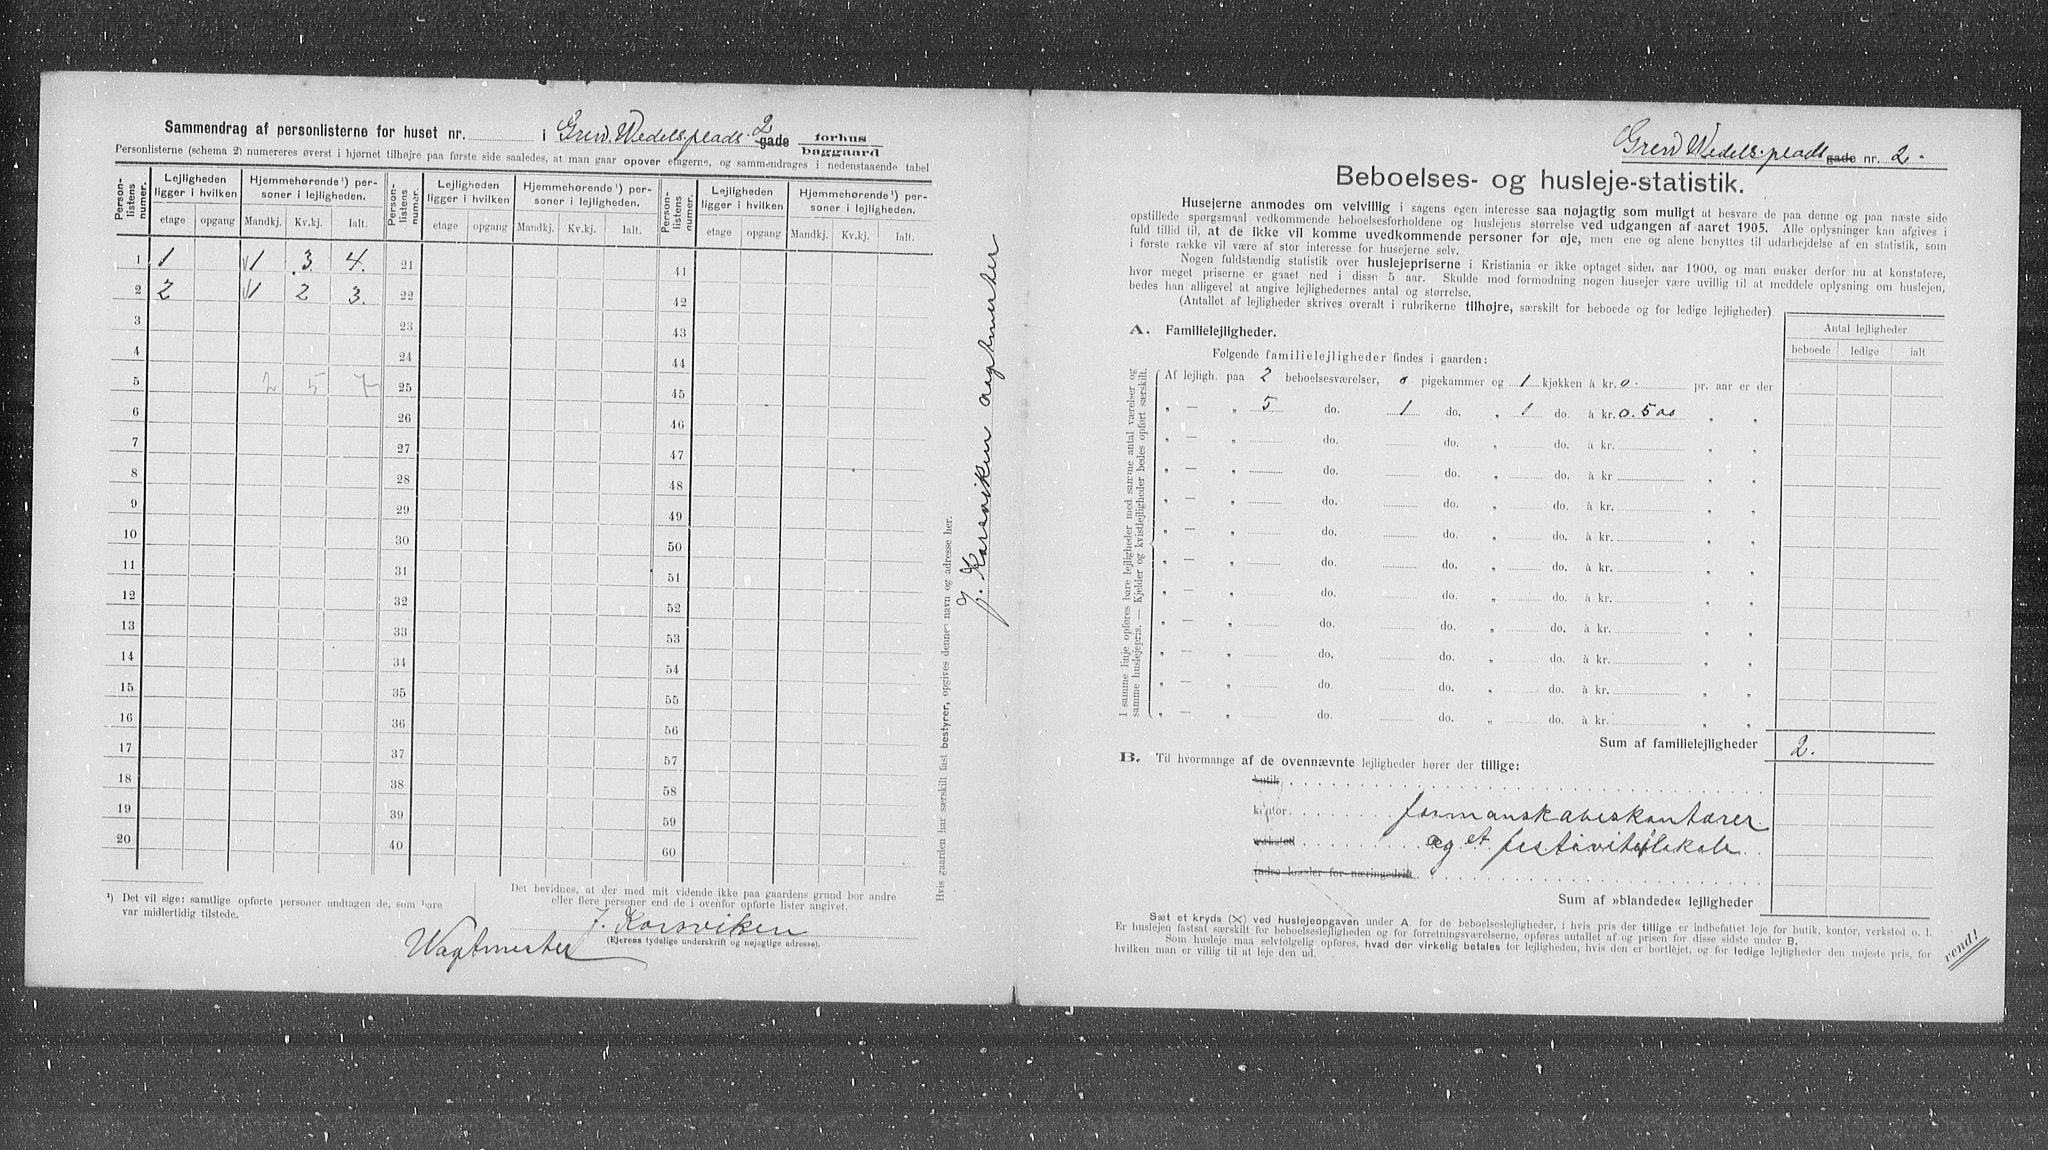 Sammendrag af personlisterne for huset nr. i Grev. Wedels plads 2 gade forhus baggaard
Personlisterne (schema 2) numereres øverst i hjørnet tilhøjre paa første side saaledes, at man gaar opover etagerne, og sammendrages i nedenstaaende tabel
Person-listens numer. Lejligheden ligger i hvilken Hjemmehørende¹) per-soner i lejligheden. Person-listens numer. Lejligheden ligger i hvilken Hjemmehørende¹) per-soner i lejligheden. Person-listens numer. Lejligheden ligger i hvilken Hjemmehørende¹) per-soner i lejligheden.
etage opgang Mandkj. Kv.kj. Ialt. etage opgang Mandkj. Kv.kj. Ialt. etage opgang Mandkj. Kv.kj. Ialt.
1 1 √1 3 4. 21 41
2 2 √1 2 3. 22 42
3 23 43
4 24 44
5 2 5 7 25 45
6 26 46
7 27 47
8 28 48
9 29 49
10 30 50
11 31 51
12 32 52
13 33 53
14 34 54
15 35 55
16 36 56
17 37 57
18 38 58
19 39 59
20 40 60
¹) Det vil sige: samtlige opførte personer undtagen de, som bare
var midlertidig tilstede.
Det bevidnes, at der med mit vidende ikke paa gaardens grund bor andre
eller flere personer end de i ovenfor opførte lister angivet.
J. Korsviken
Wagtmester
(Ejerens tydelige underskrift og nøjagtige adresse).
Hvis gaarden har særskilt fast bestyrer, opgives dennes navn og adresse her.
J. Korsviken vagtmester
Grev Wedels plads gade nr. 2.
Beboelses- og husleje-statistik.
Husejerne anmodes om velvillig i sagens egen interesse saa nøjagtig som muligt at besvare de paa denne og paa næste side
opstillede spørgsmaal vedkommende beboelsesforholdene og huslejens størrelse ved udgangen af aaret 1905. Alle oplysninger kan afgives i
fuld tillid til, at de ikke vil komme uvedkommende personer for øje, men ene og alene benyttes til udarbejdelse af en statistik, som
i første række vil være af stor interesse for husejerne selv.
Nogen fuldstændig statistik over huslejepriserne i Kristiania er ikke optaget siden aar 1900, og man ønsker derfor nu at konstatere,
hvor meget priserne er gaaet ned i disse 5 aar. Skulde mod formodning nogen husejer være uvillig til at meddele oplysning om huslejen,
bedes han alligevel at angive lejlighedernes antal og størrelse.
(Antallet af lejligheder skrives overalt i rubrikerne tilhøjre, særskilt for beboede og for ledige lejligheder)
A. Familielejligheder.
Antal lejligheder
beboede ledige ialt
Følgende familielejligheder findes i gaarden:
I samme linje opføres bare lejligheder med samme antal værelser og
samme huslejepris. — Kjelder og kvistlejligheder bedes opført særskilt.
Af lejligh. paa 2 beboelsesværelser, 0 pigekammer og 1 kjøkken à kr. 0. pr. aar er der
„ — „ 5 do. 1 do. „ 1 do. à kr. 0.500 „ „
„ — „ do. do. „ do. à kr. „ „
„ — „ do. do. „ do. à kr. „ „
„ — „ do. do. „ do. à kr. „ „
„ — „ do. do. „ do. à kr. „ „
„ — „ do. do. „ do. à kr. „ „
„ — „ do. do. „ do. à kr. „ „
„ — „ do. do. „ do. à kr. „ „
„ — „ do. do. „ do. à kr. „ „
„ — „ do. do. „ do. à kr. „ „
„ — „ do. do. „ do. à kr. „ „
Sum af familielejligheder 2.
B. Til hvormange af de ovennævnte lejligheder hører der tillige:
butik
kontor formanskabskontorer
verksted og et festivitetslokale
andre lokaler for næringsdrift
Sum af »blandede« lejligheder
Sæt et kryds (X) ved huslejeopgaven under A for de beboelseslejligheder, i hvis pris der tillige er indbefattet leje for butik, kontor, verksted o. l.
Er huslejen fastsat særskilt for beboelseslejligheden og for forretningsværelserne, opføres antallet af og prisen for disse sidste under B.
Som husleje maa selvfølgelig opføres, hvad der virkelig betales for lejligheden, hvis den er bortlejet, og for ledige lejligheder den nøjeste pris, for
hvilken man er villig til at leje den ud.
vend!